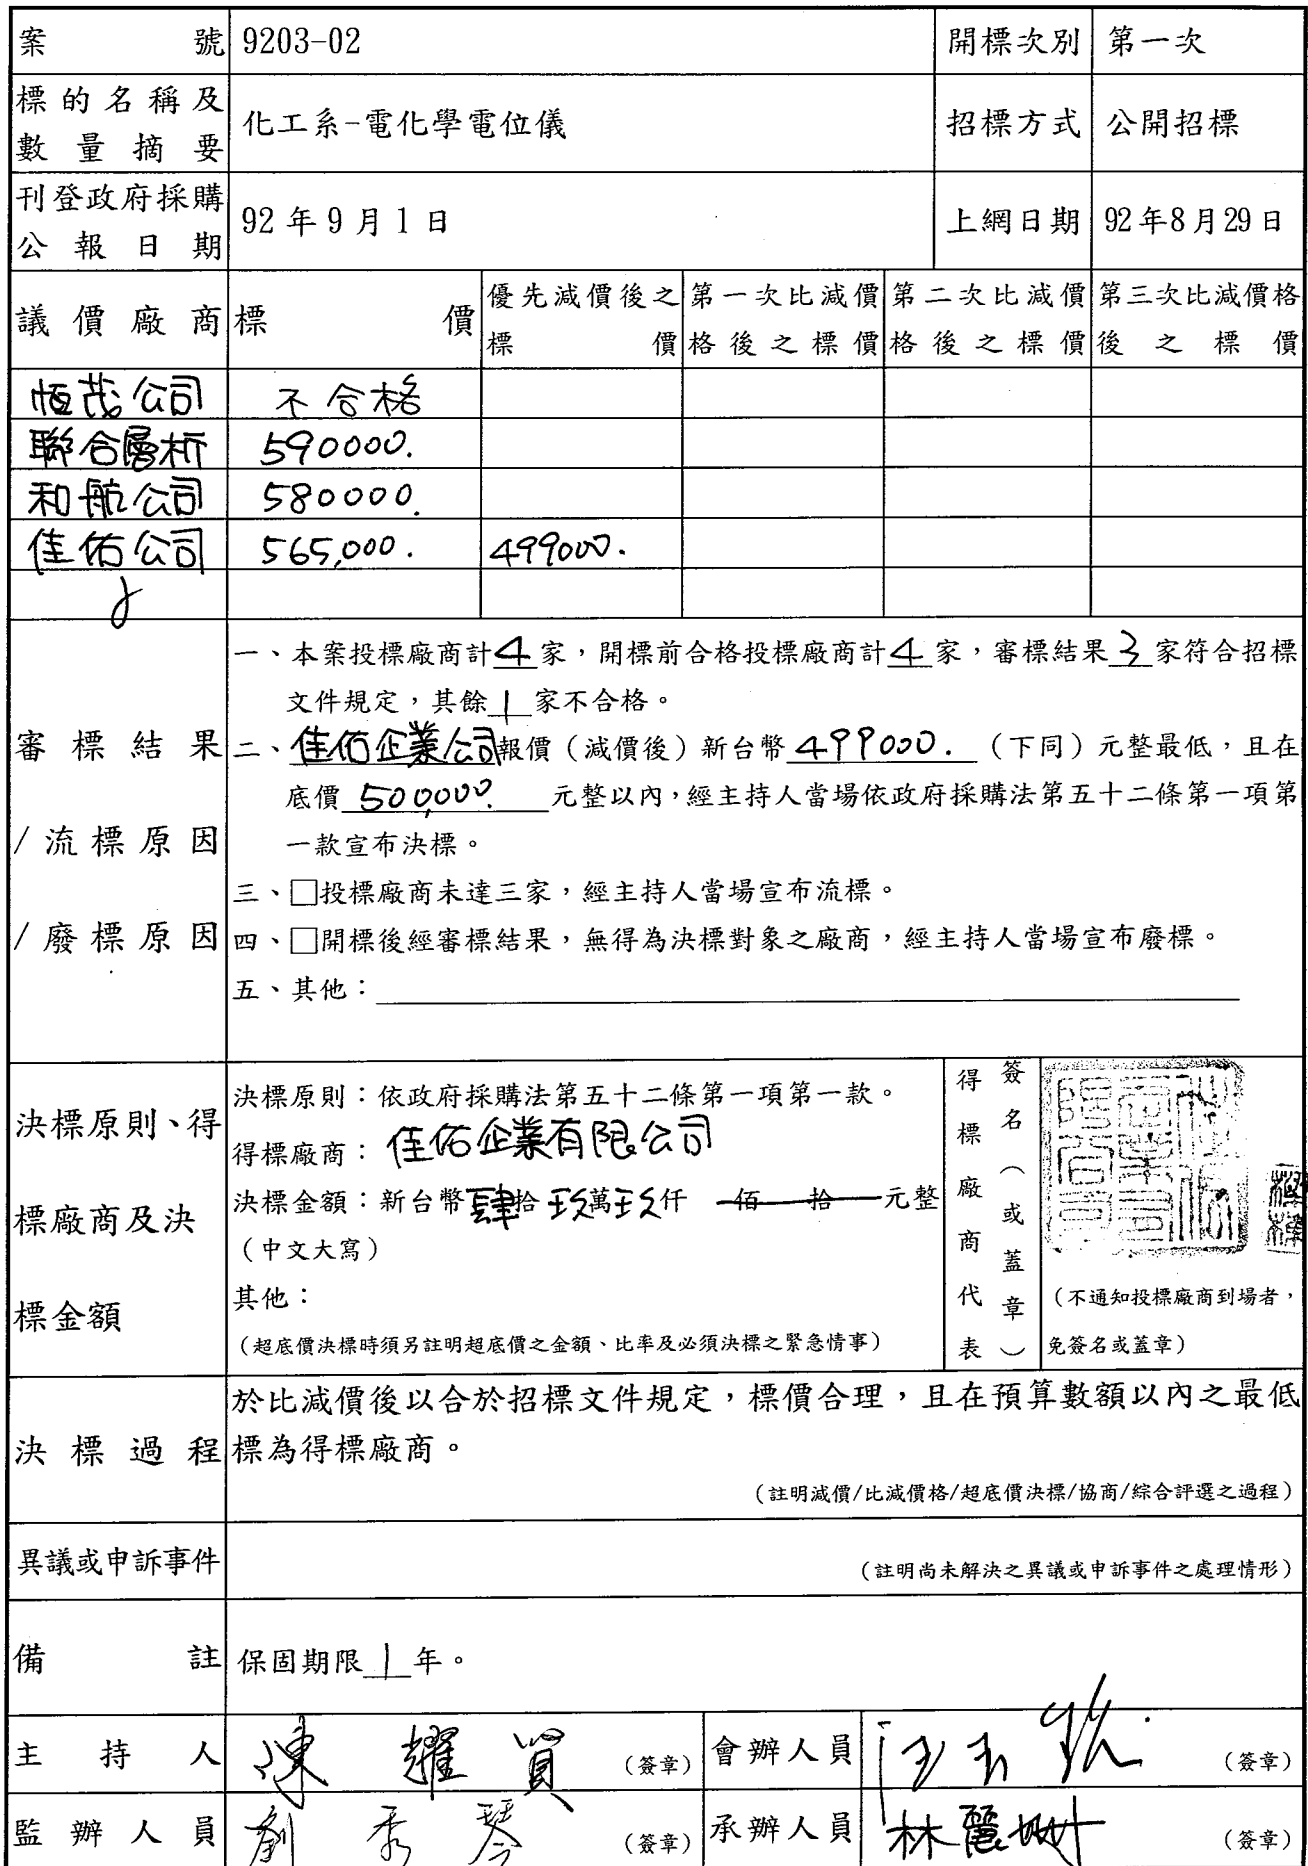 案 號 9203-02 開標次別 第一次
標的名稱及
數量摘要 化工系-電化學電位儀 招標方式 公開招標
刊登政府採購
公報日期 92年9月1日 上網日期 92年8月29日
議價廠商 標 價 優先減價後之標價 第一次比減價格後之標價 第二次比減價格後之標價 第三次比減價格後之標價
恒茂公司 不合格
聯合層析 590000.
和航公司 580000.
佳佑公司 565,000. 499000.
審標結果
/流標原因
/廢標原因
一、本案投標廠商計4家，開標前合格投標廠商計4家，審標結果3家符合招標
文件規定，其餘1家不合格。
二、佳佑企業公司報價（減價後）新台幣499000.（下同）元整最低，且在
底價500,000.元整以內，經主持人當場依政府採購法第五十二條第一項第
一款宣布決標。
三、□投標廠商未達三家，經主持人當場宣布流標。
四、□開標後經審標結果，無得為決標對象之廠商，經主持人當場宣布廢標。
五、其他：
決標原則、得
標廠商及決
標金額
決標原則：依政府採購法第五十二條第一項第一款。
得標廠商：佳佑企業有限公司
決標金額：新台幣肆拾玖萬玖仟 佰 拾 元整
（中文大寫）
其他：
（超底價決標時須另註明超底價之金額、比率及必須決標之緊急情事）
得標廠商代表
簽名（或蓋章）
（不通知投標廠商到場者，
免簽名或蓋章）
決標過程
於比減價後以合於招標文件規定，標價合理，且在預算數額以內之最低
標為得標廠商。
（註明減價/比減價格/超底價決標/協商/綜合評選之過程）
異議或申訴事件 （註明尚未解決之異議或申訴事件之處理情形）
備 註 保固期限1年。
主持人 陳耀 （簽章） 會辦人員 （簽章）
監辦人員 劉秀琴 （簽章） 承辦人員 林麗珊 （簽章）